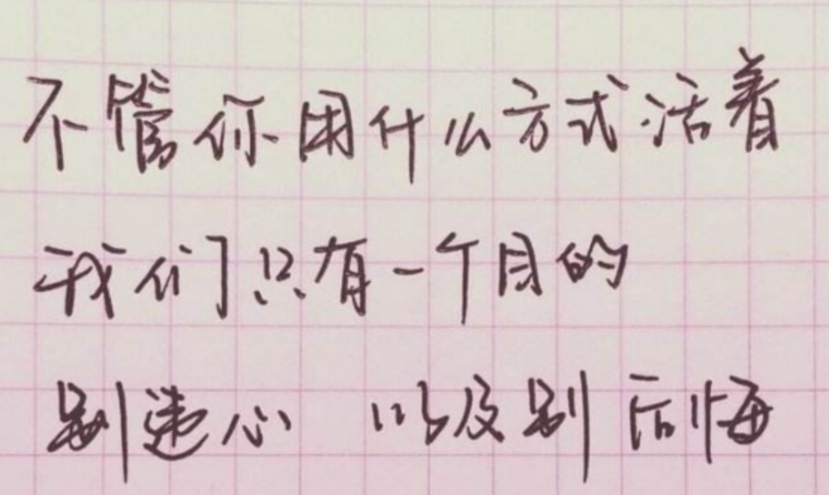 不管你用什么方式活着
我们只有一个目的
别违心 以及别后悔